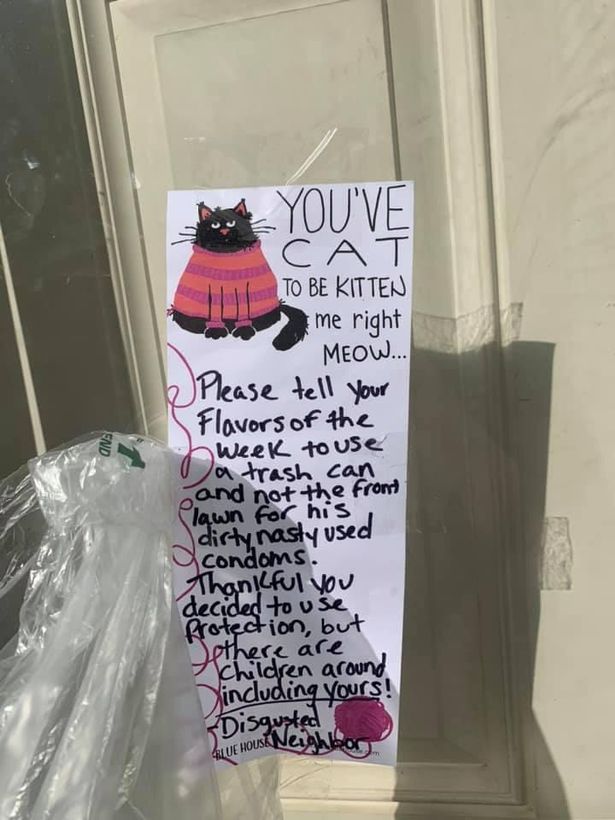 YOU'VE
CAT
TO BE KITTEN
me right
MEOW...
Please tell your
Flavors of the
week to use
a trash can
and not the front
lawn for his
dirty nasty used
condoms.
Thankful you
decided to use
Protection, but
there are
children around
including yours!
-Disgusted
Neighbor
BLUE HOUSE
END